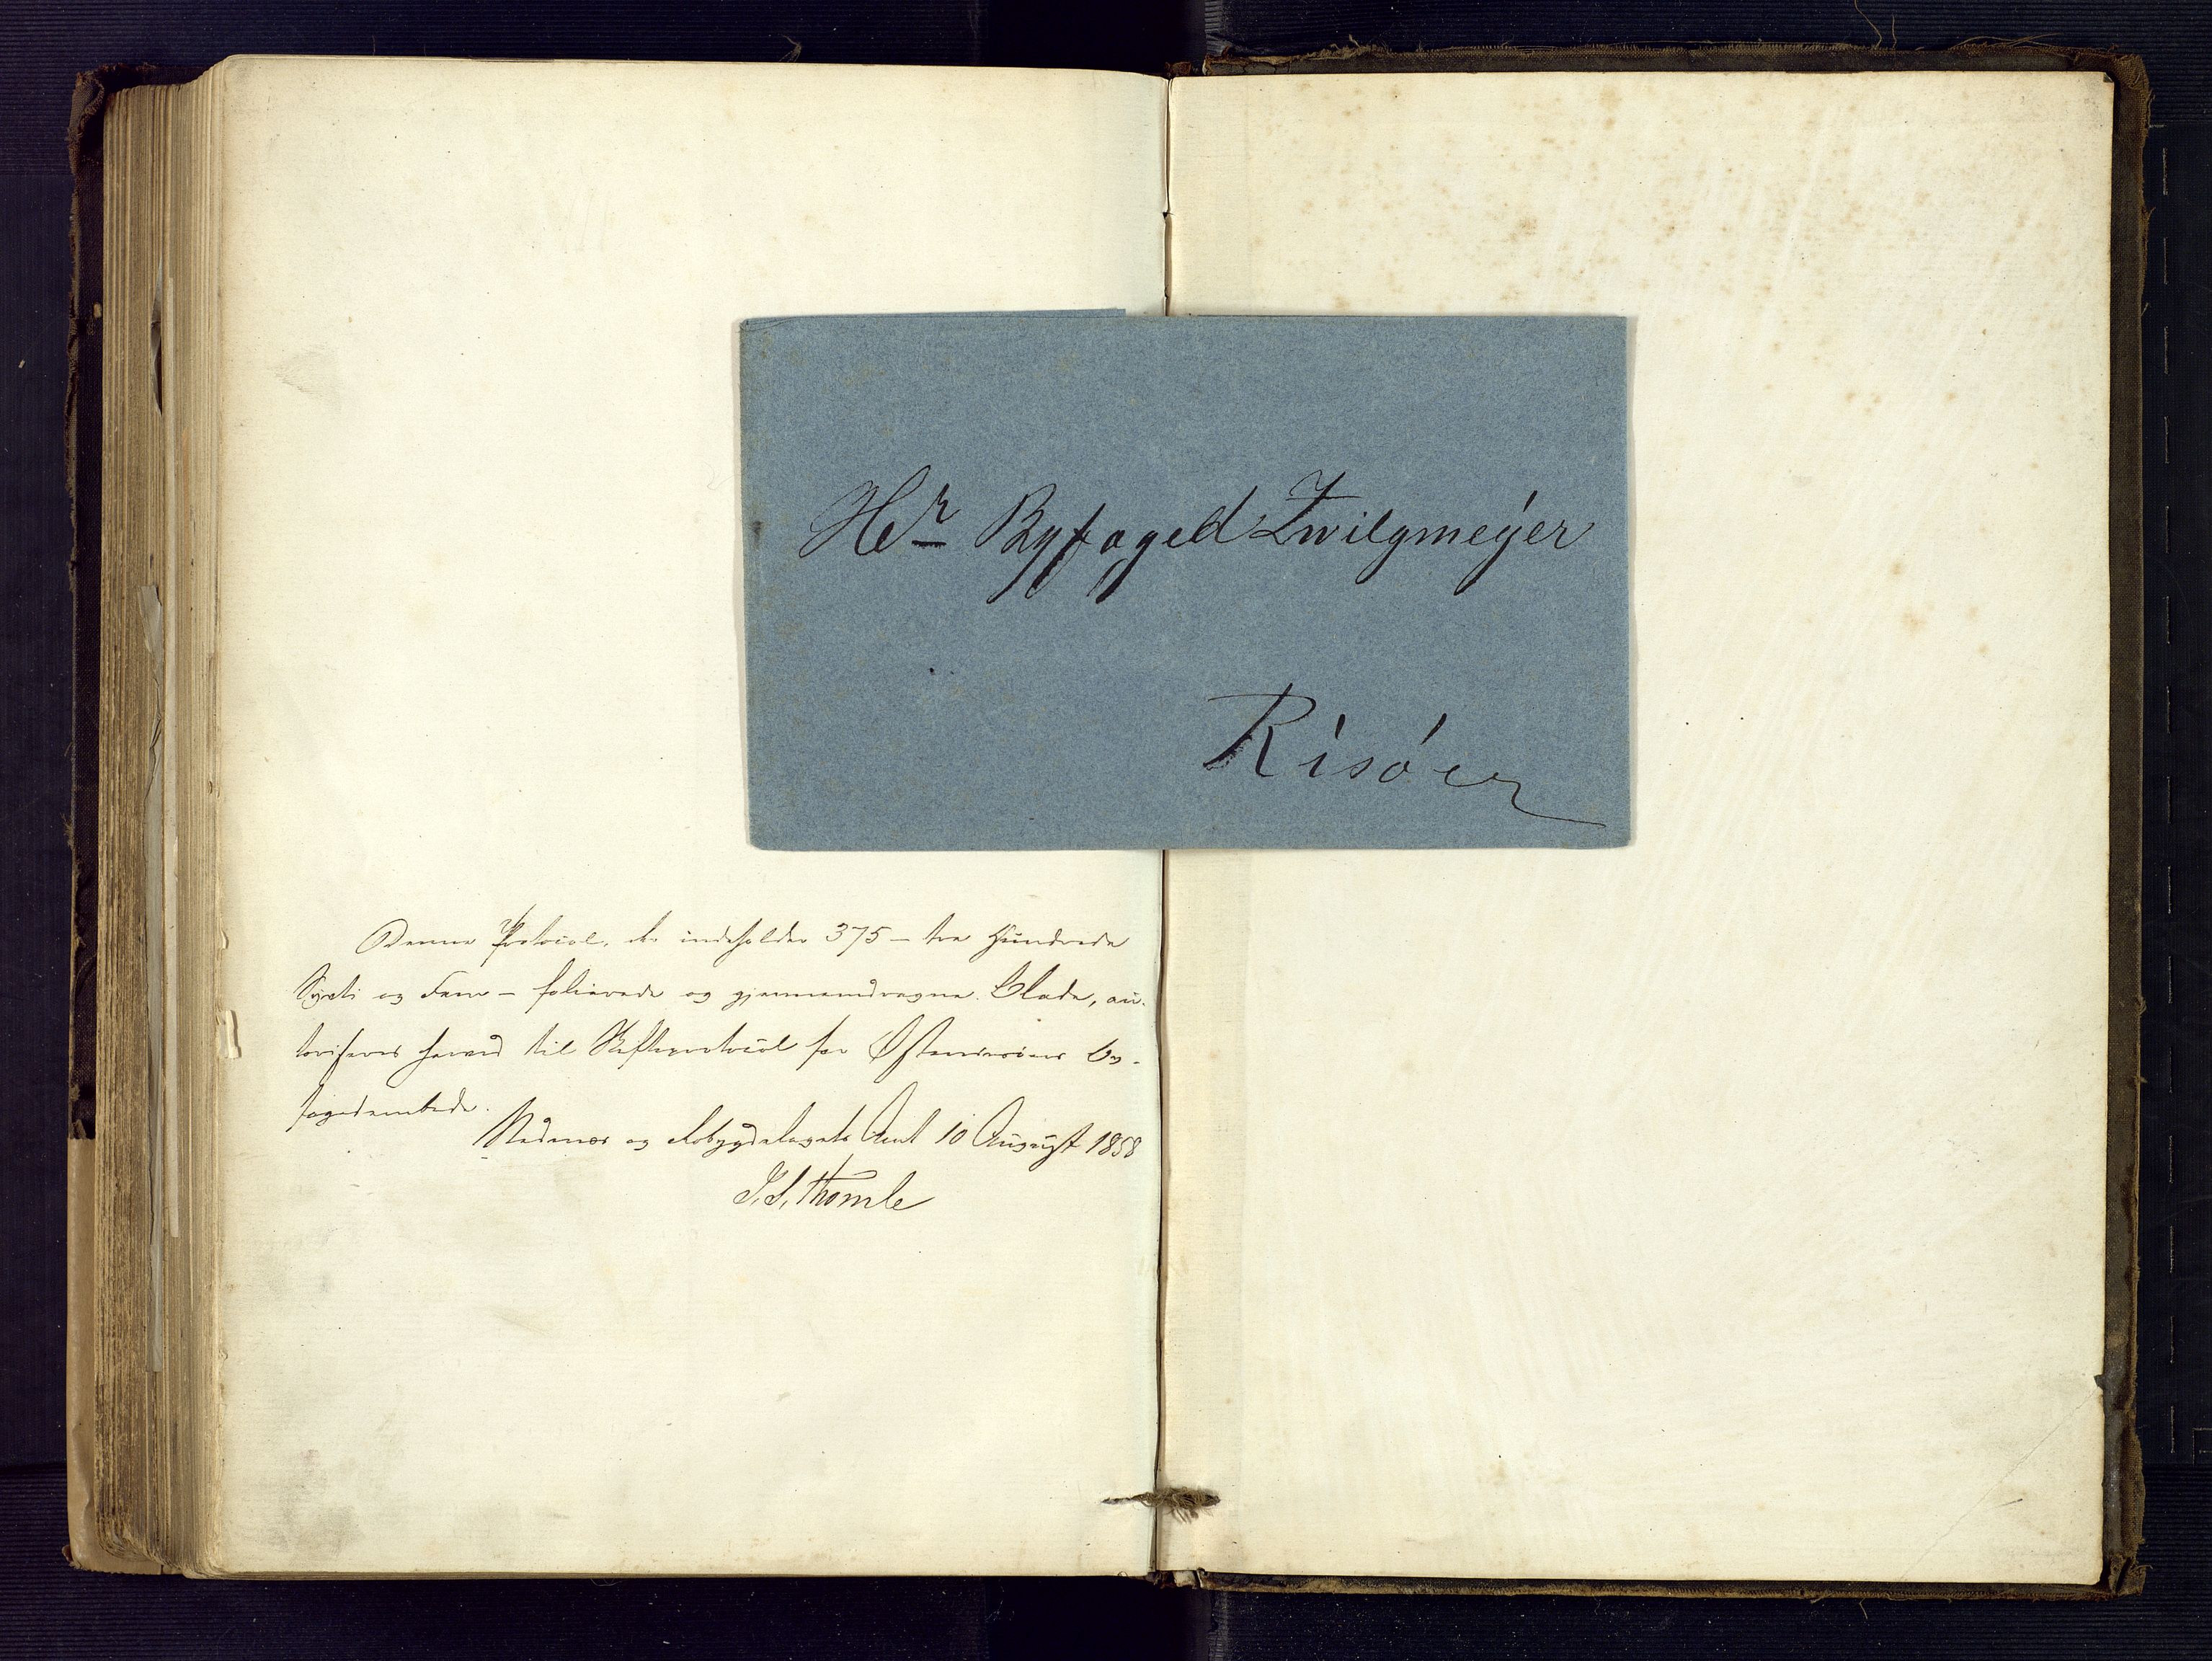 Hr Byfoged Zwilgmeÿer
Risóer
Denne Protocol, der indeholder 375 – tre Hundrede
Sÿtti og Fem – folierede og gjennemdragne Blade, au-
toriseres herved til Skifteprotocol for Østerrisøers By-
fogedembede.
Nedenæs og Robygdelagets Amt 10 August 1858
J. S. Thomle